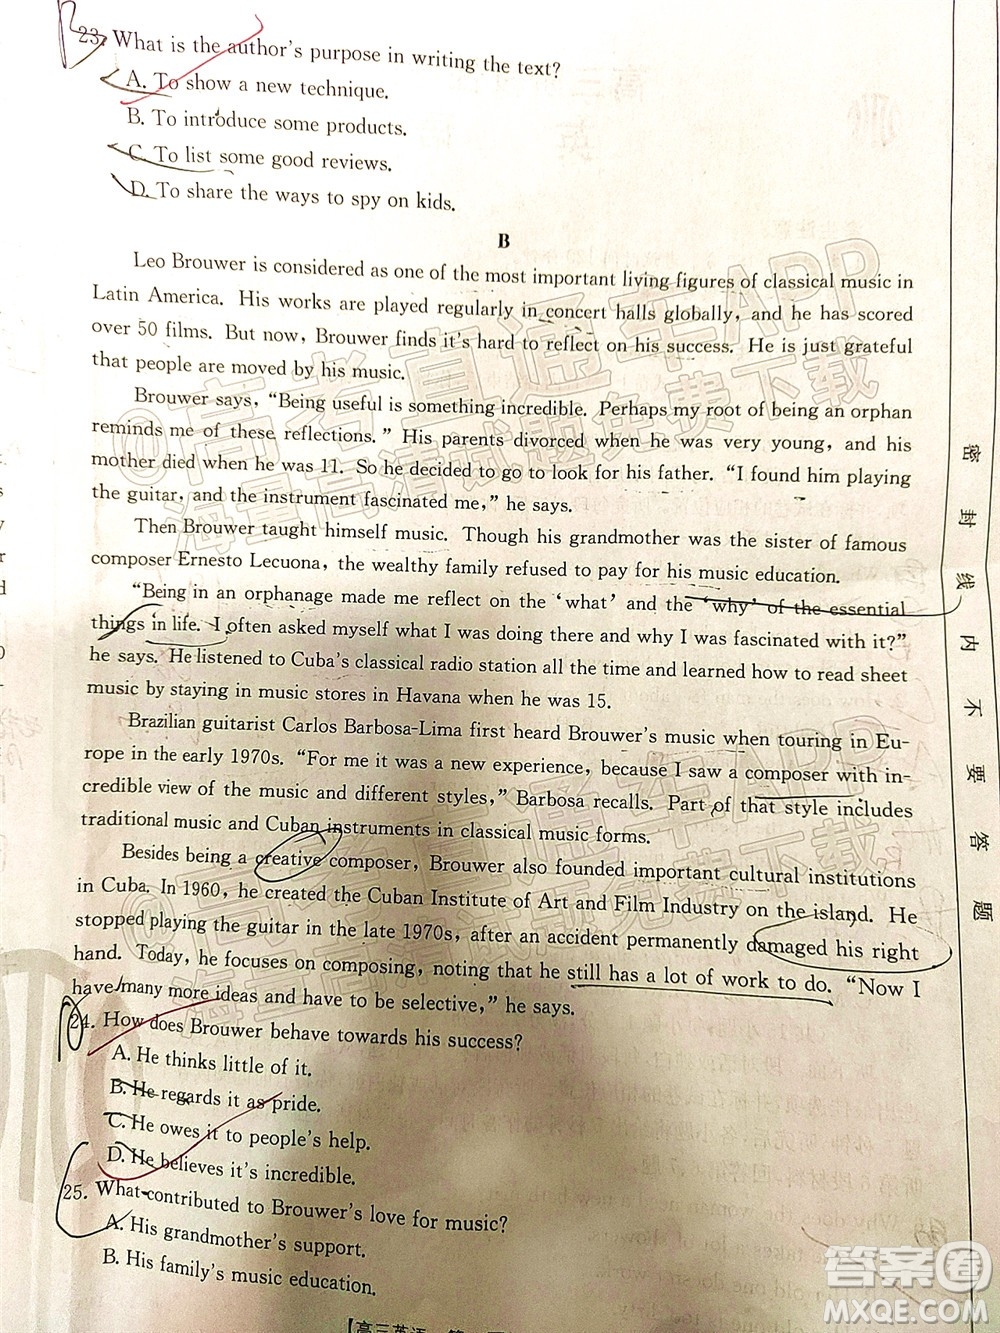 23. What is the author's purpose in writing the text?
A. To show a new technique.
B. To introduce some products.
C. To list some good reviews.
D. To share the ways to spy on kids.
B
Leo Brouwer is considered as one of the most important living figures of classical music in
Latin America. His works are played regularly in concert halls globally, and he has scored
over 50 films. But now, Brouwer finds it's hard to reflect on his success. He is just grateful
that people are moved by his music.
Brouwer says, "Being useful is something incredible. Perhaps my root of being an orphan
reminds me of these reflections." His parents divorced when he was very young, and his
mother died when he was 11. So he decided to go to look for his father. "I found him playing
the guitar, and the instrument fascinated me," he says.
Then Brouwer taught himself music. Though his grandmother was the sister of famous
composer Ernesto Lecuona, the wealthy family refused to pay for his music education.
"Being in an orphanage made me reflect on the 'what' and the 'why' of the essential
things in life. I often asked myself what I was doing there and why I was fascinated with it?"
he says. He listened to Cuba's classical radio station all the time and learned how to read sheet
music by staying in music stores in Havana when he was 15.
Brazilian guitarist Carlos Barbosa-Lima first heard Brouwer's music when touring in Eu-
rope in the early 1970s. "For me it was a new experience, because I saw a composer with in-
credible view of the music and different styles," Barbosa recalls. Part of that style includes
traditional music and Cuban instruments in classical music forms.
Besides being a creative composer, Brouwer also founded important cultural institutions
in Cuba. In 1960, he created the Cuban Institute of Art and Film Industry on the island. He
stopped playing the guitar in the late 1970s, after an accident permanently damaged his right
hand. Today, he focuses on composing, noting that he still has a lot of work to do. "Now I
have many more ideas and have to be selective," he says.
24. How does Brouwer behave towards his success?
A. He thinks little of it.
B. He regards it as pride.
C. He owes it to people's help.
D. He believes it's incredible.
25. What contributed to Brouwer's love for music?
A. His grandmother's support.
B. His family's music education.
【高三英语 第
密封线内不要答题
@高考直通车APP
海量高清试题免费下载
@高考直通车APP
海量高清试题免费下载
答案圈
MXQE.COM